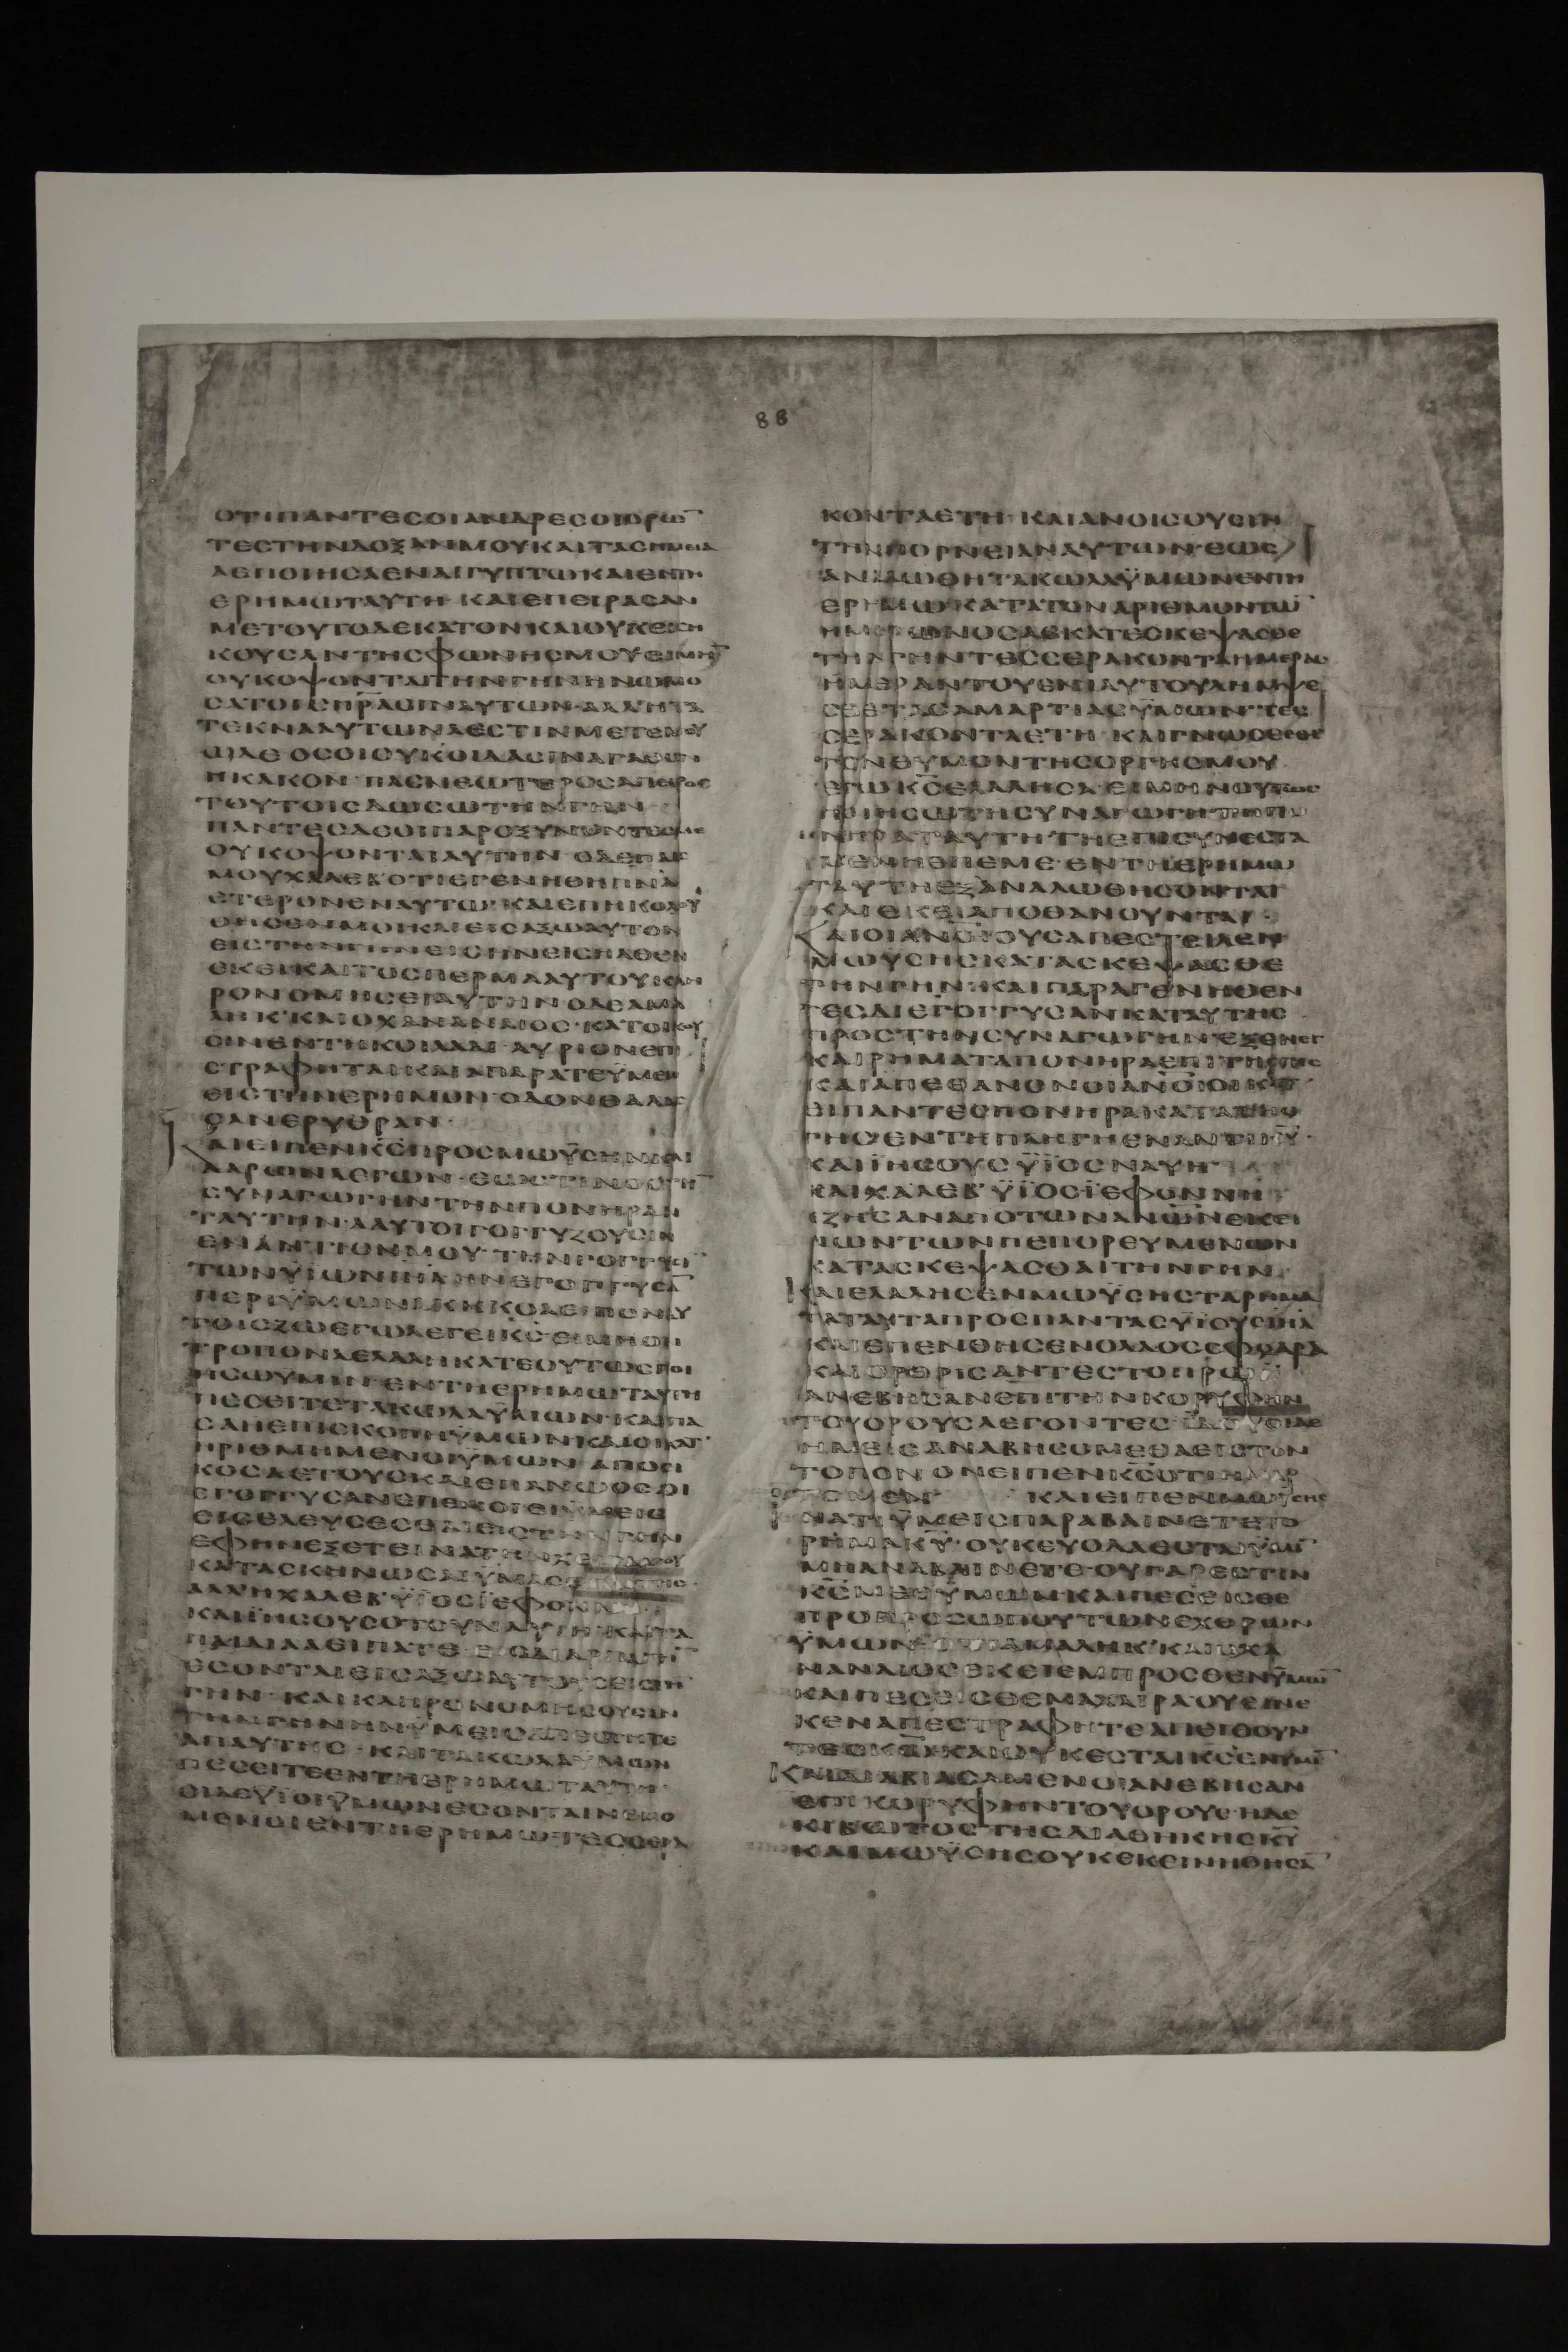 88
ΟΤΙΠΑΝΤΕCΟΙΑΝΔΡΕCΟΙΟΡΩ̅
ΤΕCΤΗΝΔΟΞΑΝΜΟΥΚΑΙΤΑCΗΜΕΙΑ
ΑΕΠΟΙΗCΑΕΝΑΙΓΥΠΤΩΚΑΙΕΝΤΗ
ΕΡΗΜΩΤΑΥΤΗ ΚΑΙΕΠΕΙΡΑCΑΝ
ΜΕΤΟΥΤΟΔΕΚΑΤΟΝΚΑΙΟΥΚΕΙCΗ
ΚΟΥCΑΝΤΗCΦΩΝΗCΜΟΥΕΙΜΗ̅
ΟΥΚΟΨΟΝΤΑΙΤΗΝΓΗΝΗΝΩΜΟ
CΑΤΟΙCΠΡ̅ΑCΙΝΑΥΤΩΝ·ΑΛΛΗΤΑ
ΤΕΚΝΑΑΥΤΩΝΑΕCΤΙΝΜΕΤΕΜΟΥ
ΩΔΕ ΟCΟΙΟΥΚΟΙΔΑCΙΝΑΓΑΘΟΝ
ΗΚΑΚΟΝ· ΠΑCΝΕΩΤΕΡΟCΑΠΕΙΡΟC
ΤΟΥΤΟΙCΔΩCΩΤΗΝΓΗΝ
ΠΑΝΤΕCΔΕΟΙΠΑΡΟΞΥΝΟΝΤΕCΜΕ
ΟΥΚΟΨΟΝΤΑΙΑΥΤΗΝ ΟΔΕΠΑΙC
ΜΟΥΧΑΛΕΒ'ΟΤΙΕΓΕΝΗΘΗΠΝ̅Α
ΕΤΕΡΟΝΕΝΑΥΤΩ·ΚΑΙΕΠΗΚΟΛΟΥ
ΘΗCΕΝΜΟΙΚΑΙΕΙCΑΞΩΑΥΤΟΝ
ΕΙCΤΗΝΓΗΝΕΙCΗΝΕΙCΗΛΘΕΝ
ΕΚΕΙΚΑΙΤΟCΠΕΡΜΑΑΥΤΟΥΚΛΗ
ΡΟΝΟΜΗCΕΙΑΥΤΗΝ ΟΔΕΑΜΑ
ΛΗΚ'ΚΑΙΟΧΑΝΑΝΑΙΟC·ΚΑΤΟΙΚΟΥ
CΙΝΕΝΤΗΚΟΙΛΑΔΙ ΑΥΡΙΟΝΕΠΙ
CΤΡΑΦΗΤΑΙΚΑΙΑΠΑΡΑΤΕΫΜΕΙC
ΕΙCΤΗΝΕΡΗΜΟΝ·ΟΔΟΝΘΑΛΑC
CΑΝΕΡΥΘΡΑΝ·
ΚΑΙΕΙΠΕΝΚ̅CΠΡΟCΜΩΫCΗΝΚΑΙ
ΑΑΡΩΝΛΕΓΩΝ·ΕΩCΤΙΝΟCΤΗ̅
CΥΝΑΓΩΓΗΝΤΗΝΠΟΝΗΡΑΝ
ΤΑΥΤΗΝ·ΑΑΥΤΟΙΓΟΓΓΥΖΟΥCΙΝ
ΕΝΑΝΤΙΟΝΜΟΥ·ΤΗΝΓΟΓΓΥCΙ̅
ΤΩΝΫΙΩΝΙΗ̅ΛΗΝΕΓΟΓΓΥCΑ̅
ΠΕΡΙΫΜΩΝΑΚΗΚΟΑΕΙΠΟΝΑΥ
ΤΟΙCΖΩΕΓΩΛΕΓΕΙΚ̅CΕΙΜΗΟΝ
ΤΡΟΠΟΝΛΕΛΑΛΗΚΑΤΕΟΥΤΩCΠΟΙ
ΗCΩΥΜΙΝ·ΕΝΤΗΕΡΗΜΩΤΑΥΤΗ
ΠΕCΕΙΤΕΤΑΚΩΛΑΫΜΩΝ·ΚΑΙΠΑ
CΑΗΕΠΙCΚΟΠΗΫΜΩΝΚΑΙΟΙΚΑΤ
ΗΡΙΘΜΗΜΕΝΟΙΫΜΩΝ·ΑΠΟΕΙ
ΚΟCΑΕΤΟΥCΚΑΙΕΠΑΝΩΟCΟΙ
ΕΓΟΓΓΥCΑΝΕΠΕΜΟΙΕΙΫΜΕΙC
ΕΙCΕΛΕΥCΕCΘΑΙΕΙCΤΗΝΓΗΝ
ΚΑΤΑCΚΗΝΩCΑΙΫΜΑC
ΑΛΛΗΧΑΛΕΒ'ΫΙΟCΪΕΦΟΝΝΗ
ΚΑΙΪΗCΟΥCΟΤΟΥΝΑΥΗ·ΚΑΙΤΑ
ΠΑΙΔΙΑΑΕΙΠΑΤΕ ΕΝΔΙΑΡΠΑΓΗ
ΕCΟΝΤΑΙΕΙCΑΞΩΑΥΤΟΥCΕΙCΤΗ
ΓΗΝ·ΚΑΙΚΛΗΡΟΝΟΜΗCΟΥCΙΝ
ΤΗΝΓΗΝΗΝΫΜΕΙCΑΠΕCΤΗΤΕ
ΑΠΑΥΤΗC·ΚΑΙΤΑΚΩΛΑΫΜΩΝ
ΠΕCΕΙΤΕΕΝΤΗΕΡΗΜΩΤΑΥΤΗ·
ΟΙΔΕΫΙΟΙΫΜΩΝΕCΟΝΤΑΙΝΕΜΟ
ΜΕΝΟΙΕΝΤΗΕΡΗΜΩ·ΤΕCCΕΡΑ
ΚΟΝΤΑΕΤΗ·ΚΑΙΑΝΟΙCΟΥCΙΝ
ΤΗΝΠΟΡΝΕΙΑΝΑΥΤΩΝ·ΕΩC
ΑΝΑΛΩΘΗΤΑΚΩΛΑΫΜΩΝΕΝΤΗ
ΕΡΗΜΩΚΑΤΑΤΟΝΑΡΙΘΜΟΝΤΩ̅
ΗΜΕΡΩΝΟCΑCΚΑΤΕCΚΕΨΑCΘΕ
ΤΗΝΓΗΝΤΕCCΕΡΑΚΟΝΤΑΗΜΕΡΑC
ΗΜΕΡΑΝΤΟΥΕΝΙΑΥΤΟΥΛΗΜΨΕ
CΘΕΤΑCΑΜΑΡΤΙΑCΫΜΩΝ·ΤΕC
CΕΡΑΚΟΝΤΑΕΤΗ ΚΑΙΓΝΩCΕCΘΕ
ΤΟΝΘΥΜΟΝΤΗCΟΡΓΗCΜΟΥ
ΕΓΩΚ̅CΕΛΑΛΗCΑ·ΕΙΜΗΝΟΥΤΩC
ΠΟΙΗCΩΤΗCΥΝΑΓΩΓΗΤΗΠΟ
ΝΗΡΑΤΑΥΤΗΤΗΕΠΙCΥΝΕCΤΑ
ΜΕΝΗΕΠΕΜΕ·ΕΝΤΗΕΡΗΜΩ
ΤΑΥΤΗΕΞΑΝΑΛΩΘΗCΟΝΤΑΙ
ΚΑΙΕΚΕΙΑΠΟΘΑΝΟΥΝΤΑΙ·
ΚΑΙΟΙΑΝ̅ΟΙΟΥCΑΠΕCΤΕΙΛΕΝ
ΜΩΫCΗCΚΑΤΑCΚΕΨΑCΘΕ
ΤΗΝΓΗΝ·ΚΑΙΠΑΡΑΓΕΝΗΘΕΝ
ΤΕCΔΙΕΓΟΓΓΥCΑΝΚΑΤΑΥΤΗC
ΠΡΟCΤΗΝCΥΝΑΓΩΓΗΝ·ΕΞΕΝΕΓ
ΚΑΙΡΗΜΑΤΑΠΟΝΗΡΑΠΕΡΙΤΗCΓΗC
ΚΑΙΑΠΕΘΑΝΟΝΟΙΑΝ̅ΟΙΟΙΚΑΤ
ΕΙΠΑΝΤΕCΠΟΝΗΡΑΚΑΤΑΤΗC
ΓΗCΕΝΤΗΠΛΗΓΗΕΝΑΝΤΙΚ̅Υ·
ΚΑΙΪΗCΟΥCΫΪΟCΝΑΥΗ
ΚΑΙΧΑΛΕΒ'ΫΪΟCΪΕΦΟΝΝΗ
ΕΖΗCΑΝΑΠΟΤΩΝΑΝ̅ΩΝΕΚΕΙ
ΝΩΝΤΩΝΠΕΠΟΡΕΥΜΕΝΩΝ
ΚΑΤΑCΚΕΨΑCΘΑΙΤΗΝΓΗΝ·
ΚΑΙΕΛΑΛΗCΕΝΜΩΫCΗCΤΑΡΗΜΑ
ΤΑΤΑΥΤΑΠΡΟCΠΑΝΤΑCΥΪΟΥCΙΗ̅Λ
ΚΑΙΕΠΕΝΘΗCΕΝΟΛΑΟCCΦΟΔΡΑ
ΚΑΙΟΡΘΡΙCΑΝΤΕCΤΟΠΡΩΪ
ΑΝΕΒΗCΑΝΕΠΙΤΗΝΚΟΡΥΦΗΝ
ΤΟΥΟΡΟΥCΛΕΓΟΝΤΕC ΪΔΟΥΟΙΔΕ
ΗΜΕΙCΑΝΑΒΗCΟΜΕΘΑΕΙCΤΟΝ
ΤΟΠΟΝ ΟΝΕΙΠΕΝΚ̅CΟΤΙΗΜΑΡ
ΤΟΜΕΝ ΚΑΙΕΙΠΕΝΜΩΫCΗC
ΙΝΑΤΙΫΜΕΙCΠΑΡΑΒΑΙΝΕΤΕΤΟ
ΡΗΜΑΚ̅Υ·ΟΥΚΕΥΟΔΑΕCΤΑΙΫΜΙ̅
ΜΗΑΝΑΒΑΙΝΕΤΕ·ΟΥΓΑΡΕCΤΙΝ
Κ̅CΜΕΘΫΜΩΝΚΑΙΠΕCΕΙCΘΕ
ΠΡΟΠΡΟCΩΠΟΥΤΩΝΕΧΘΡΩΝ
ΫΜΩΝ ΟΤΙΟΑΜΑΛΗΚ'ΚΑΙΟΧΑ
ΝΑΝΑΙΟCΕΚΕΙΕΜΠΡΟCΘΕΝΫΜΩ̅
ΚΑΙΠΕCΕΙCΘΕΜΑΧΑΙΡΑΟΥΕΙΝΕ
ΚΕΝΑΠΕCΤΡΑΦΗΤΕΑΠΙΘΟΥΝ
ΤΕCΚ̅ΩΚΑΙΟΥΚΕCΤΑΙΚ̅CΕΝΥΜΙ̅
ΚΑΙΔΙΑΒΙΑCΑΜΕΝΟΙΑΝΕΒΗCΑΝ
ΕΠΙΚΟΡΥΦΗΝΤΟΥΟΡΟΥC·ΗΔΕ
ΚΙΒΩΤΟCΤΗCΔΙΑΘΗΚΗCΚ̅Υ
ΚΑΙΜΩΫCΗCΟΥΚΕΚΕΙΝΗΘΗCΑ̅